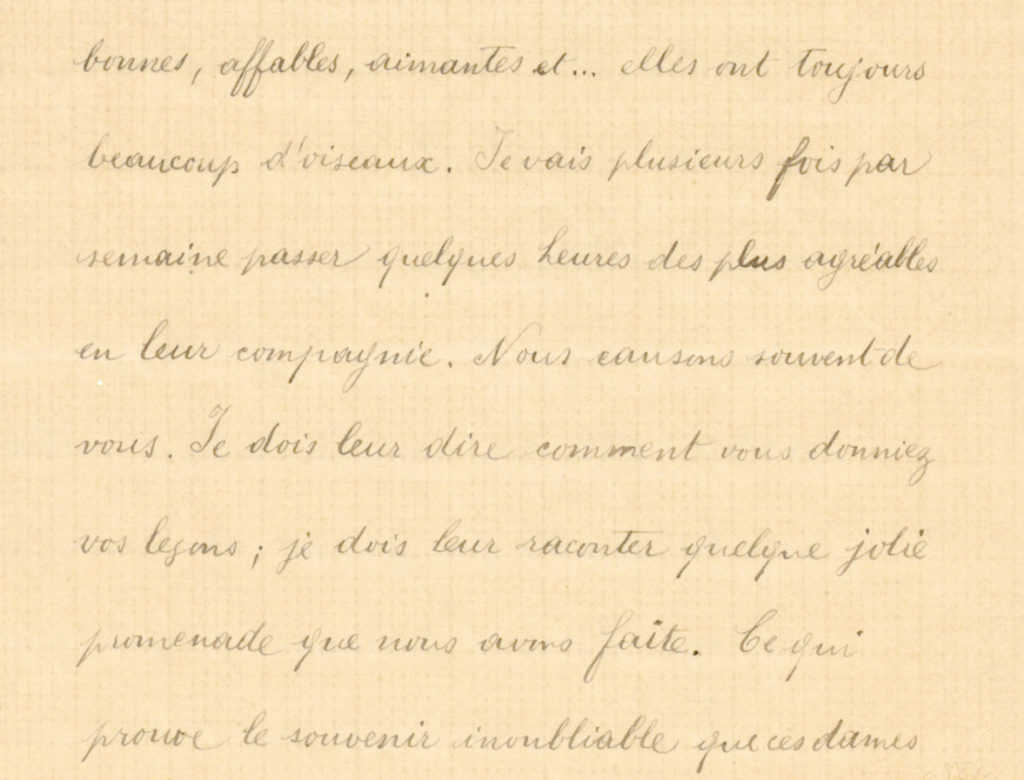 bonnes, affables, aimantes et... elles ont toujours
beaucoup d'oiseaux. Je vais plusieurs fois par
semaine passer quelques heures des plus agréables
en leur compagnie. Nous causons souvent de
vous. Je dois leur dire comment vous donniez
vos leçons ; je dois leur raconter quelque jolie
promenade que nous avons faite. Ce qui
prouve le souvenir inoubliable que ces dames